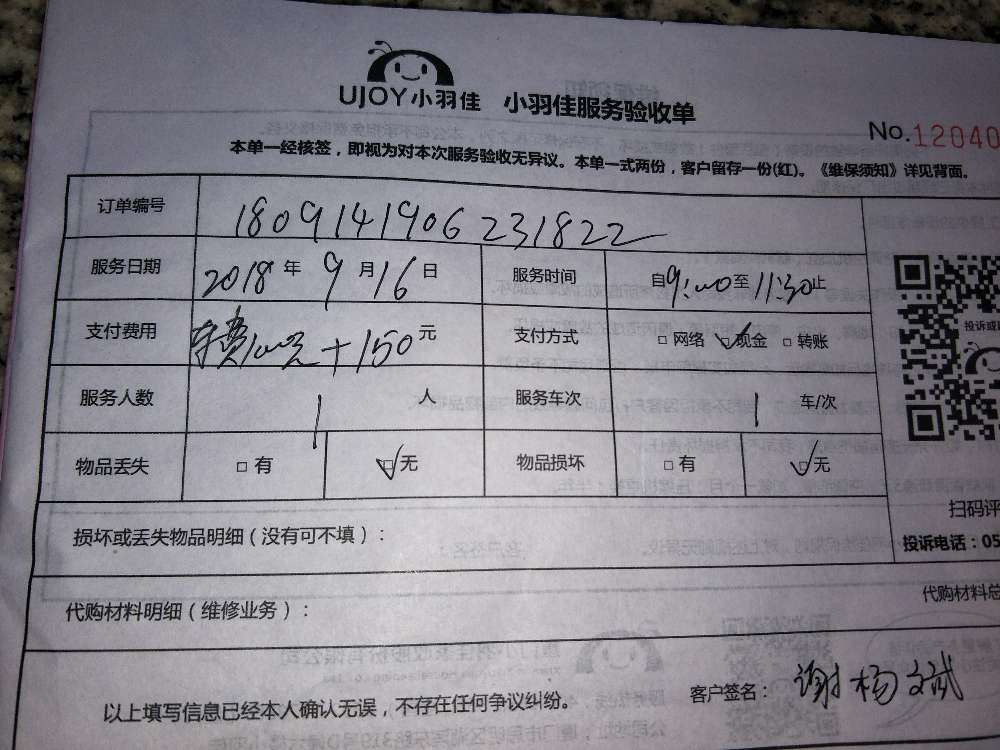 UJOY小羽佳 小羽佳服务验收单
No.12040
本单一经核签，即视为对本次服务验收无异议。本单一式两份，客户留存一份(红)。《维保须知》详见背面。
订单编号 1809141906231822
服务日期 2018年9月16日 服务时间 自9:00至11:30止
支付费用 车费100元+150元 支付方式 □网络 ☑现金 □转账
服务人数 1人 服务车次 1车/次
物品丢失 □有 ☑无 物品损坏 □有 ☑无
投诉或
扫码评
损坏或丢失物品明细（没有可不填）：
投诉电话：05
代购材料总
代购材料明细（维修业务）：
以上填写信息已经本人确认无误，不存在任何争议纠纷。
客户签名：谢杨文斌